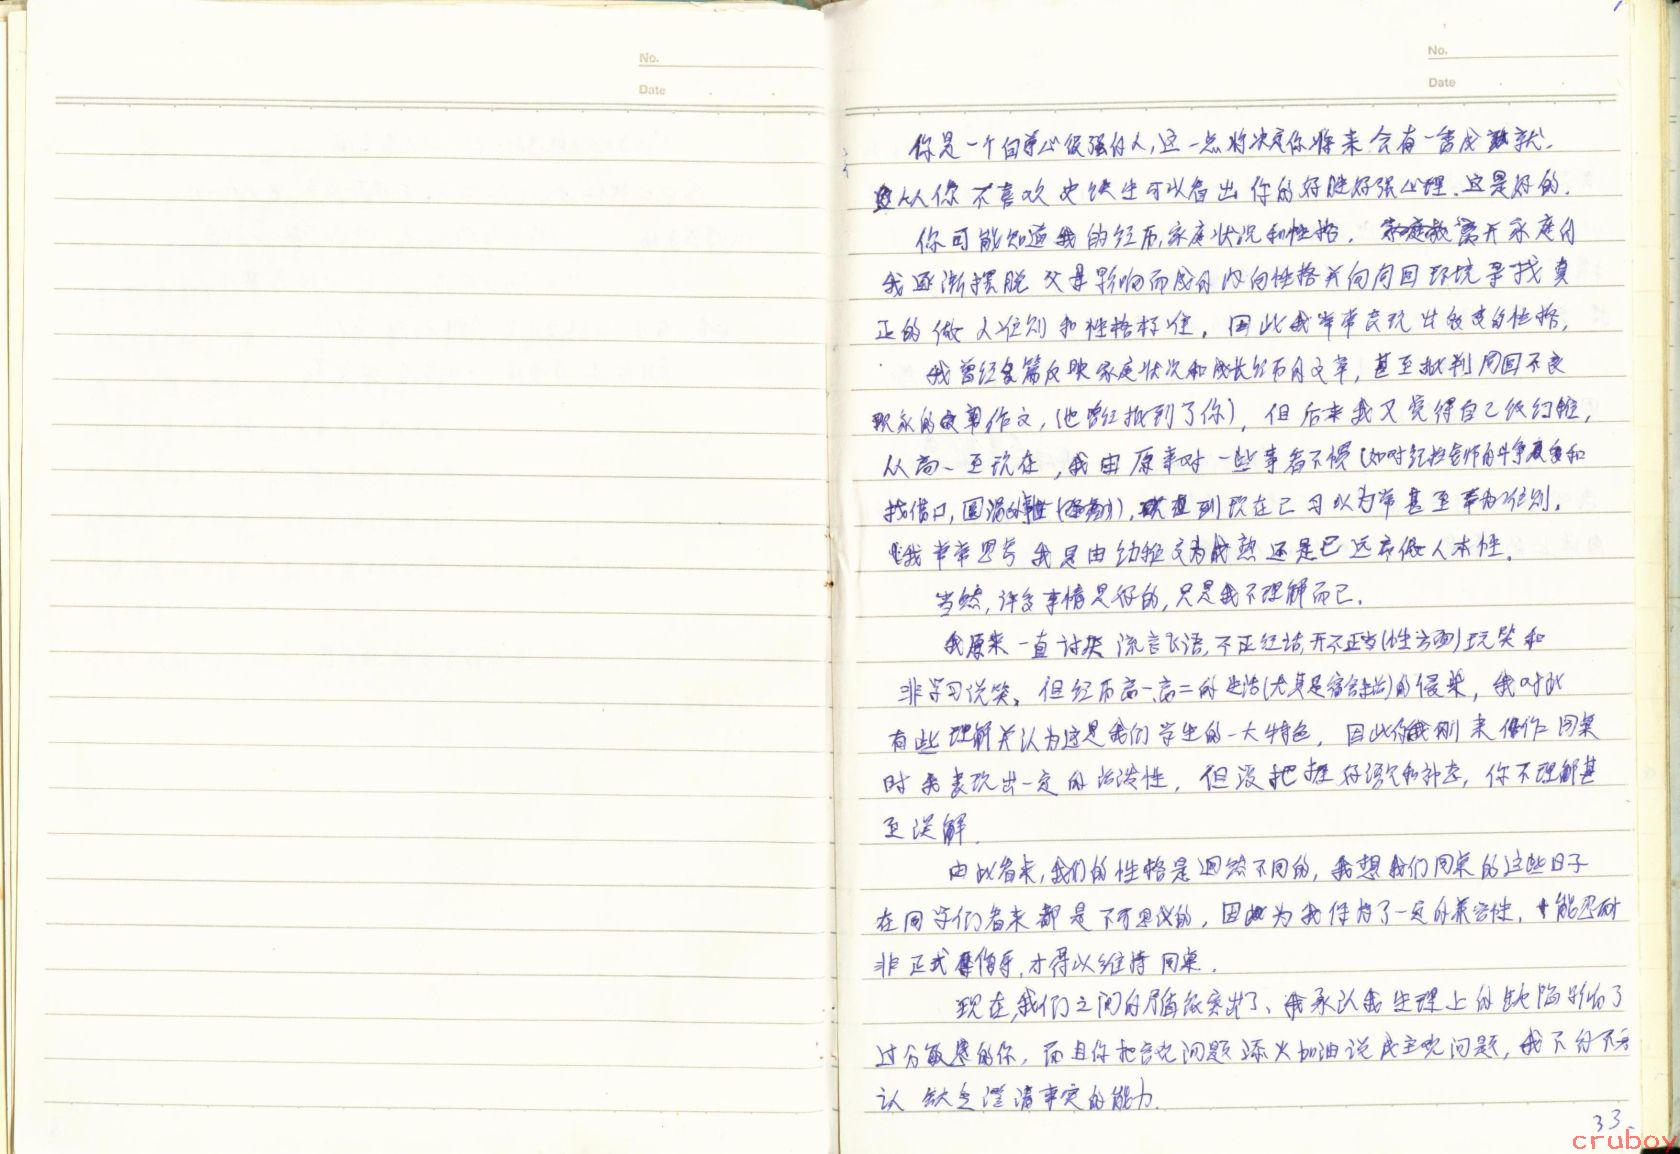 No.
Date
No.
Date
你是一个自尊心很强的人,这一点将决定你将来会有一番成就.
从你不喜欢史铁生可以看出你的好胜好强心理.这是好的.
你可能知道我的经历,家庭状况和性格. 离开家庭的
我逐渐摆脱父母影响而成的内向性格并向周围环境寻找真
正的做人准则和性格标准. 因此我常常表现出多变的性格,
我曾经多篇反映家庭状况和成长经历的文章,甚至批判周围不良
的文章作文,(也曾经批到了你), 但后来我又觉得自己很幼稚,
从高一至现在,我由原来对一些事看不惯(如对纪检老师的斗争和
找借口,圆滑 到现在已习以为常甚至奉为准则.
我常常思考我是由幼稚变为成熟还是已远离做人本性.
当然,许多事情是好的,只是我不理解而已.
我原来一直讨厌流言飞语,不正经话,开不正当(性方面)玩笑和
非学习说笑. 但经历高一、高二的生活(尤其是宿舍生活)的侵染, 我对此
有些理解并认为这是我们学生的一大特色. 因此你刚来作同桌
时我表现出一定的活泼性, 但没把握好语气和神态, 你不理解甚
至误解.
由此看来,我们的性格是迥然不同的, 我想我们同桌的这些日子
在同学们看来都是不可思议的, 因为我保持了一定的兼容性, 能忍耐
非正式 ,才得以维持同桌.
现在,我们之间的矛盾很突出了、我承认我生理上的缺陷影响了
过分敏感的你, 而且你把客观问题添火加油说成主观问题, 我不得不否
认 缺乏澄清事实的能力.
33.
cruboy